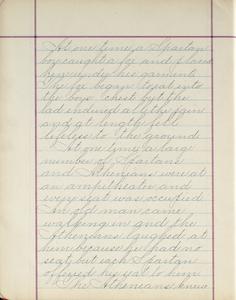 At one time a Spartan
boy caught a fox and placed
him under his garment.
The fox began to eat into
the boys chest but the
lad endured all the pain
and at length fell
lifeless to the ground.
At one time a large
number of Spartans
and Athenians were at
an ampitheater and
every seat was occupied
An old man came
walking in and the
Athenians laughed at
him because he had no
seat, but each Spartan
offered his seat to him.
The Athenians knew